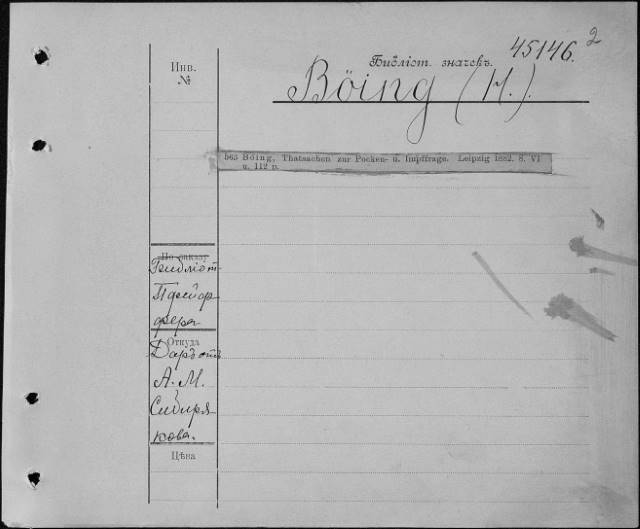 45146. 2
Инв.
№
Библіот. значекъ.
Böing (H.).
563 Böing, Thatsachen zur Pocken- u. Impffrage. Leipzig 1882. 8. VI
u. 112 p.
По заказу
Библіот.
Пфейф-
фера
Откуда
Даръ отъ
А. М.
Сибиря-
кова.
Цѣна